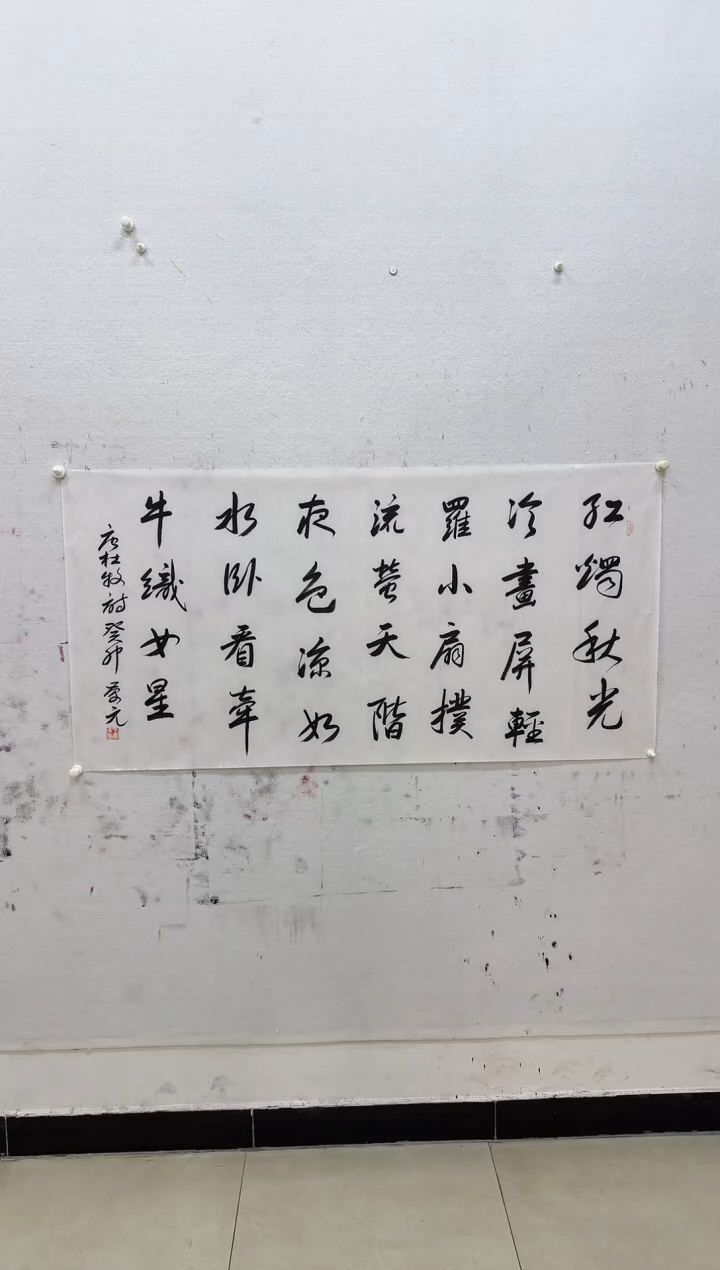 紅燭秋光
冷畫屏輕
羅小扇撲
流螢天階
夜色凉如
水卧看牽
牛織女星
唐杜牧詩癸卯 元